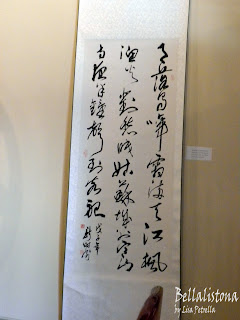 月落烏啼霜滿天江楓
漁火對愁眠姑蘇城外寒山
寺夜半鐘聲到客船
戊子年
Bellalistona
by Lisa Petrella